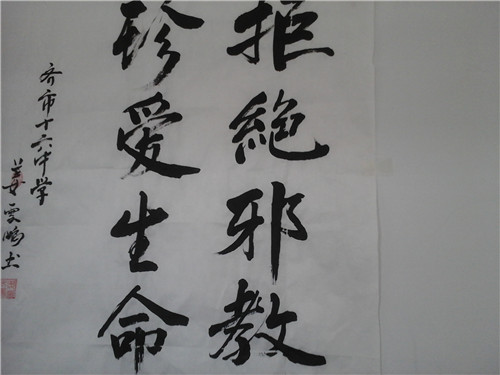 拒絶邪教
珍愛生命
齐市十六中学
姜雯